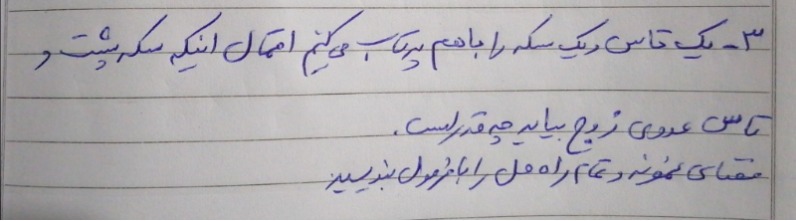 ۳- یک تاس و یک سکه را باهم پرتاب می‌کنیم احتمال اینکه سکه پشت و
تاس عددی زوج بیاید چه قدر است.
فضای نمونه و تمام راه حل را با فرمول بنویسید